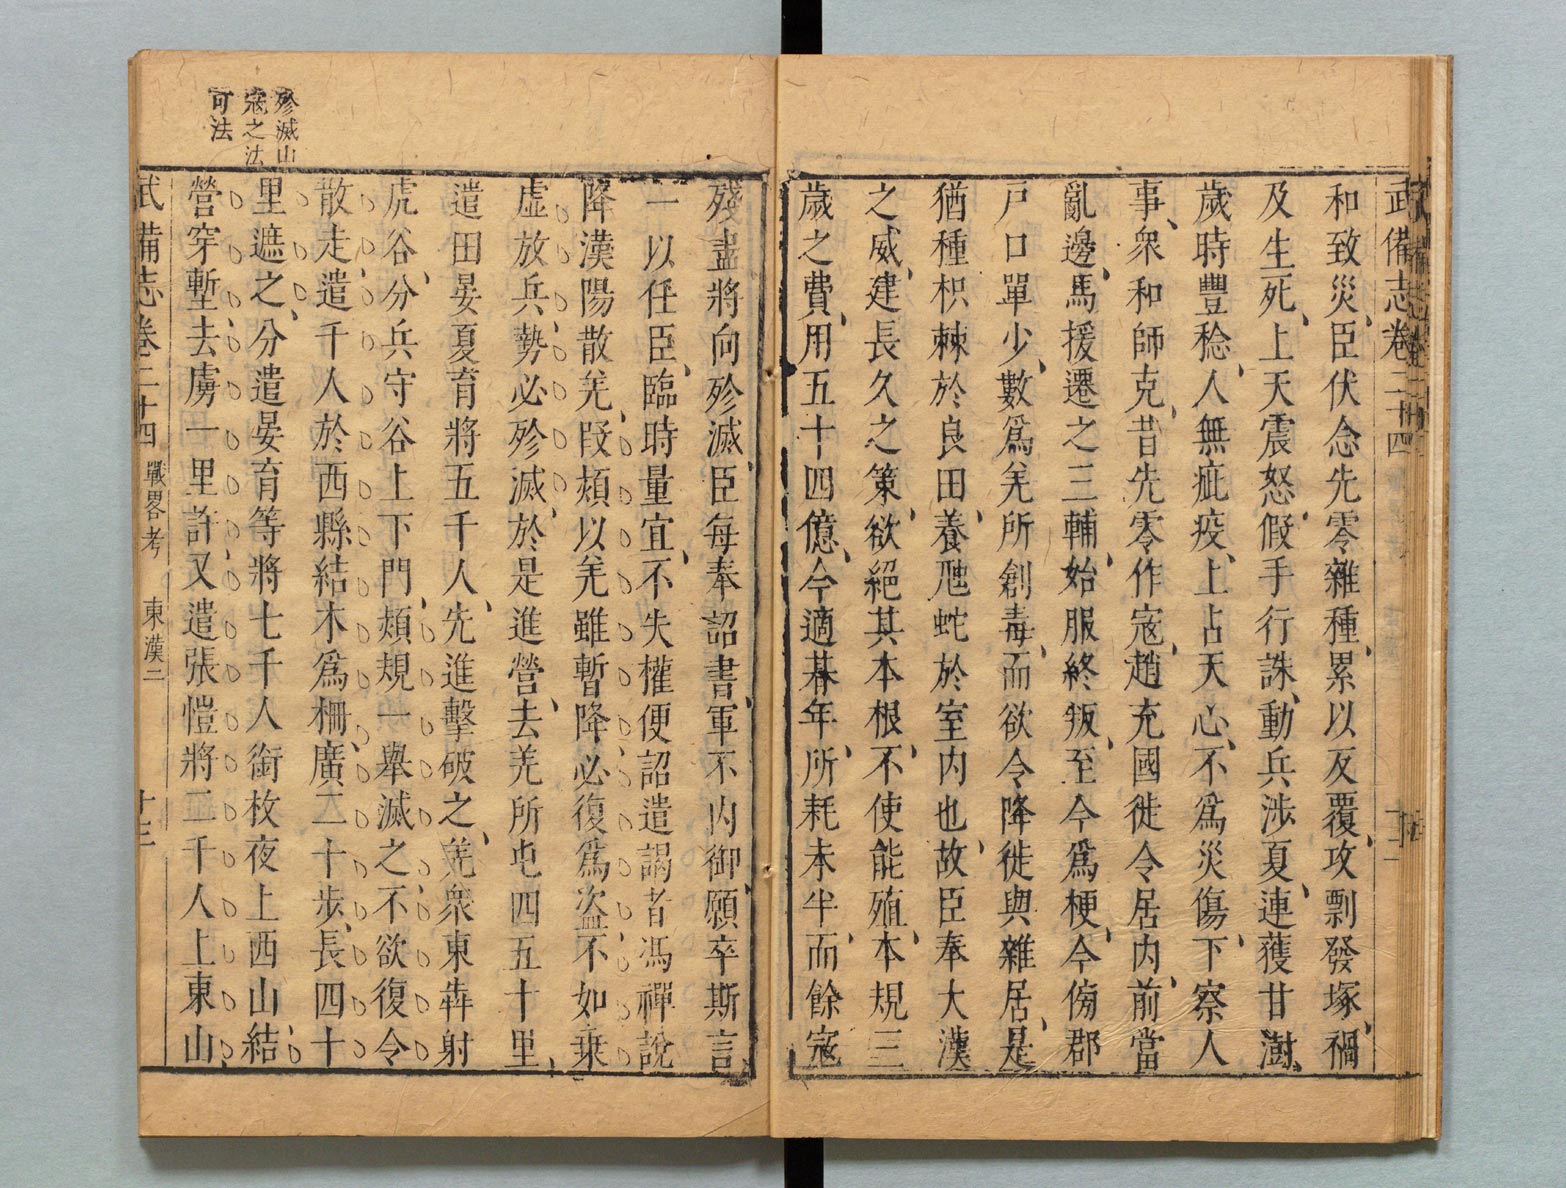 武備志卷二十四
和致災臣伏念先零雜種累以反覆攻剽發塚禍
及生死上天震怒假手行誅動兵涉夏連獲甘澍
歲時豐稔人無疵疫上占天心不為災傷下察人
事衆和師克昔先零作寇趙充國徙令居內前當
亂邊馬援遷之三輔始服終叛至今為梗今傍郡
戶口單少數為羌所創毒而欲令降徙與雜居是
猶種枳棘於良田養虺蛇於室內也故臣奉大漢
之威建長久之策欲絕其本根不使能殖本規三
歲之費用五十四億今適朞年所耗未半而餘寇
殘盡將向殄滅臣每奉詔書軍不內御願卒斯言
一以任臣臨時量宜不失權便詔遣謁者馮禪說
降漢陽散羌段熲以羌雖暫降必復為盜不如乗
虛放兵勢必殄滅於是進營去羌所屯四五十里
遣田晏夏育將五千人先進擊破之羌衆東犇射
虎谷分兵守谷上下門熲規一舉滅之不欲復令
散走遣千人於西縣結木為柵廣二十步長四十
里遮之分遣晏育等將七千人銜枚夜上西山結
營穿塹去虜一里許又遣張愷將三千人上東山
武備志卷二十四 戰畧考 東漢二 十三
殄滅山
寇之法
可法